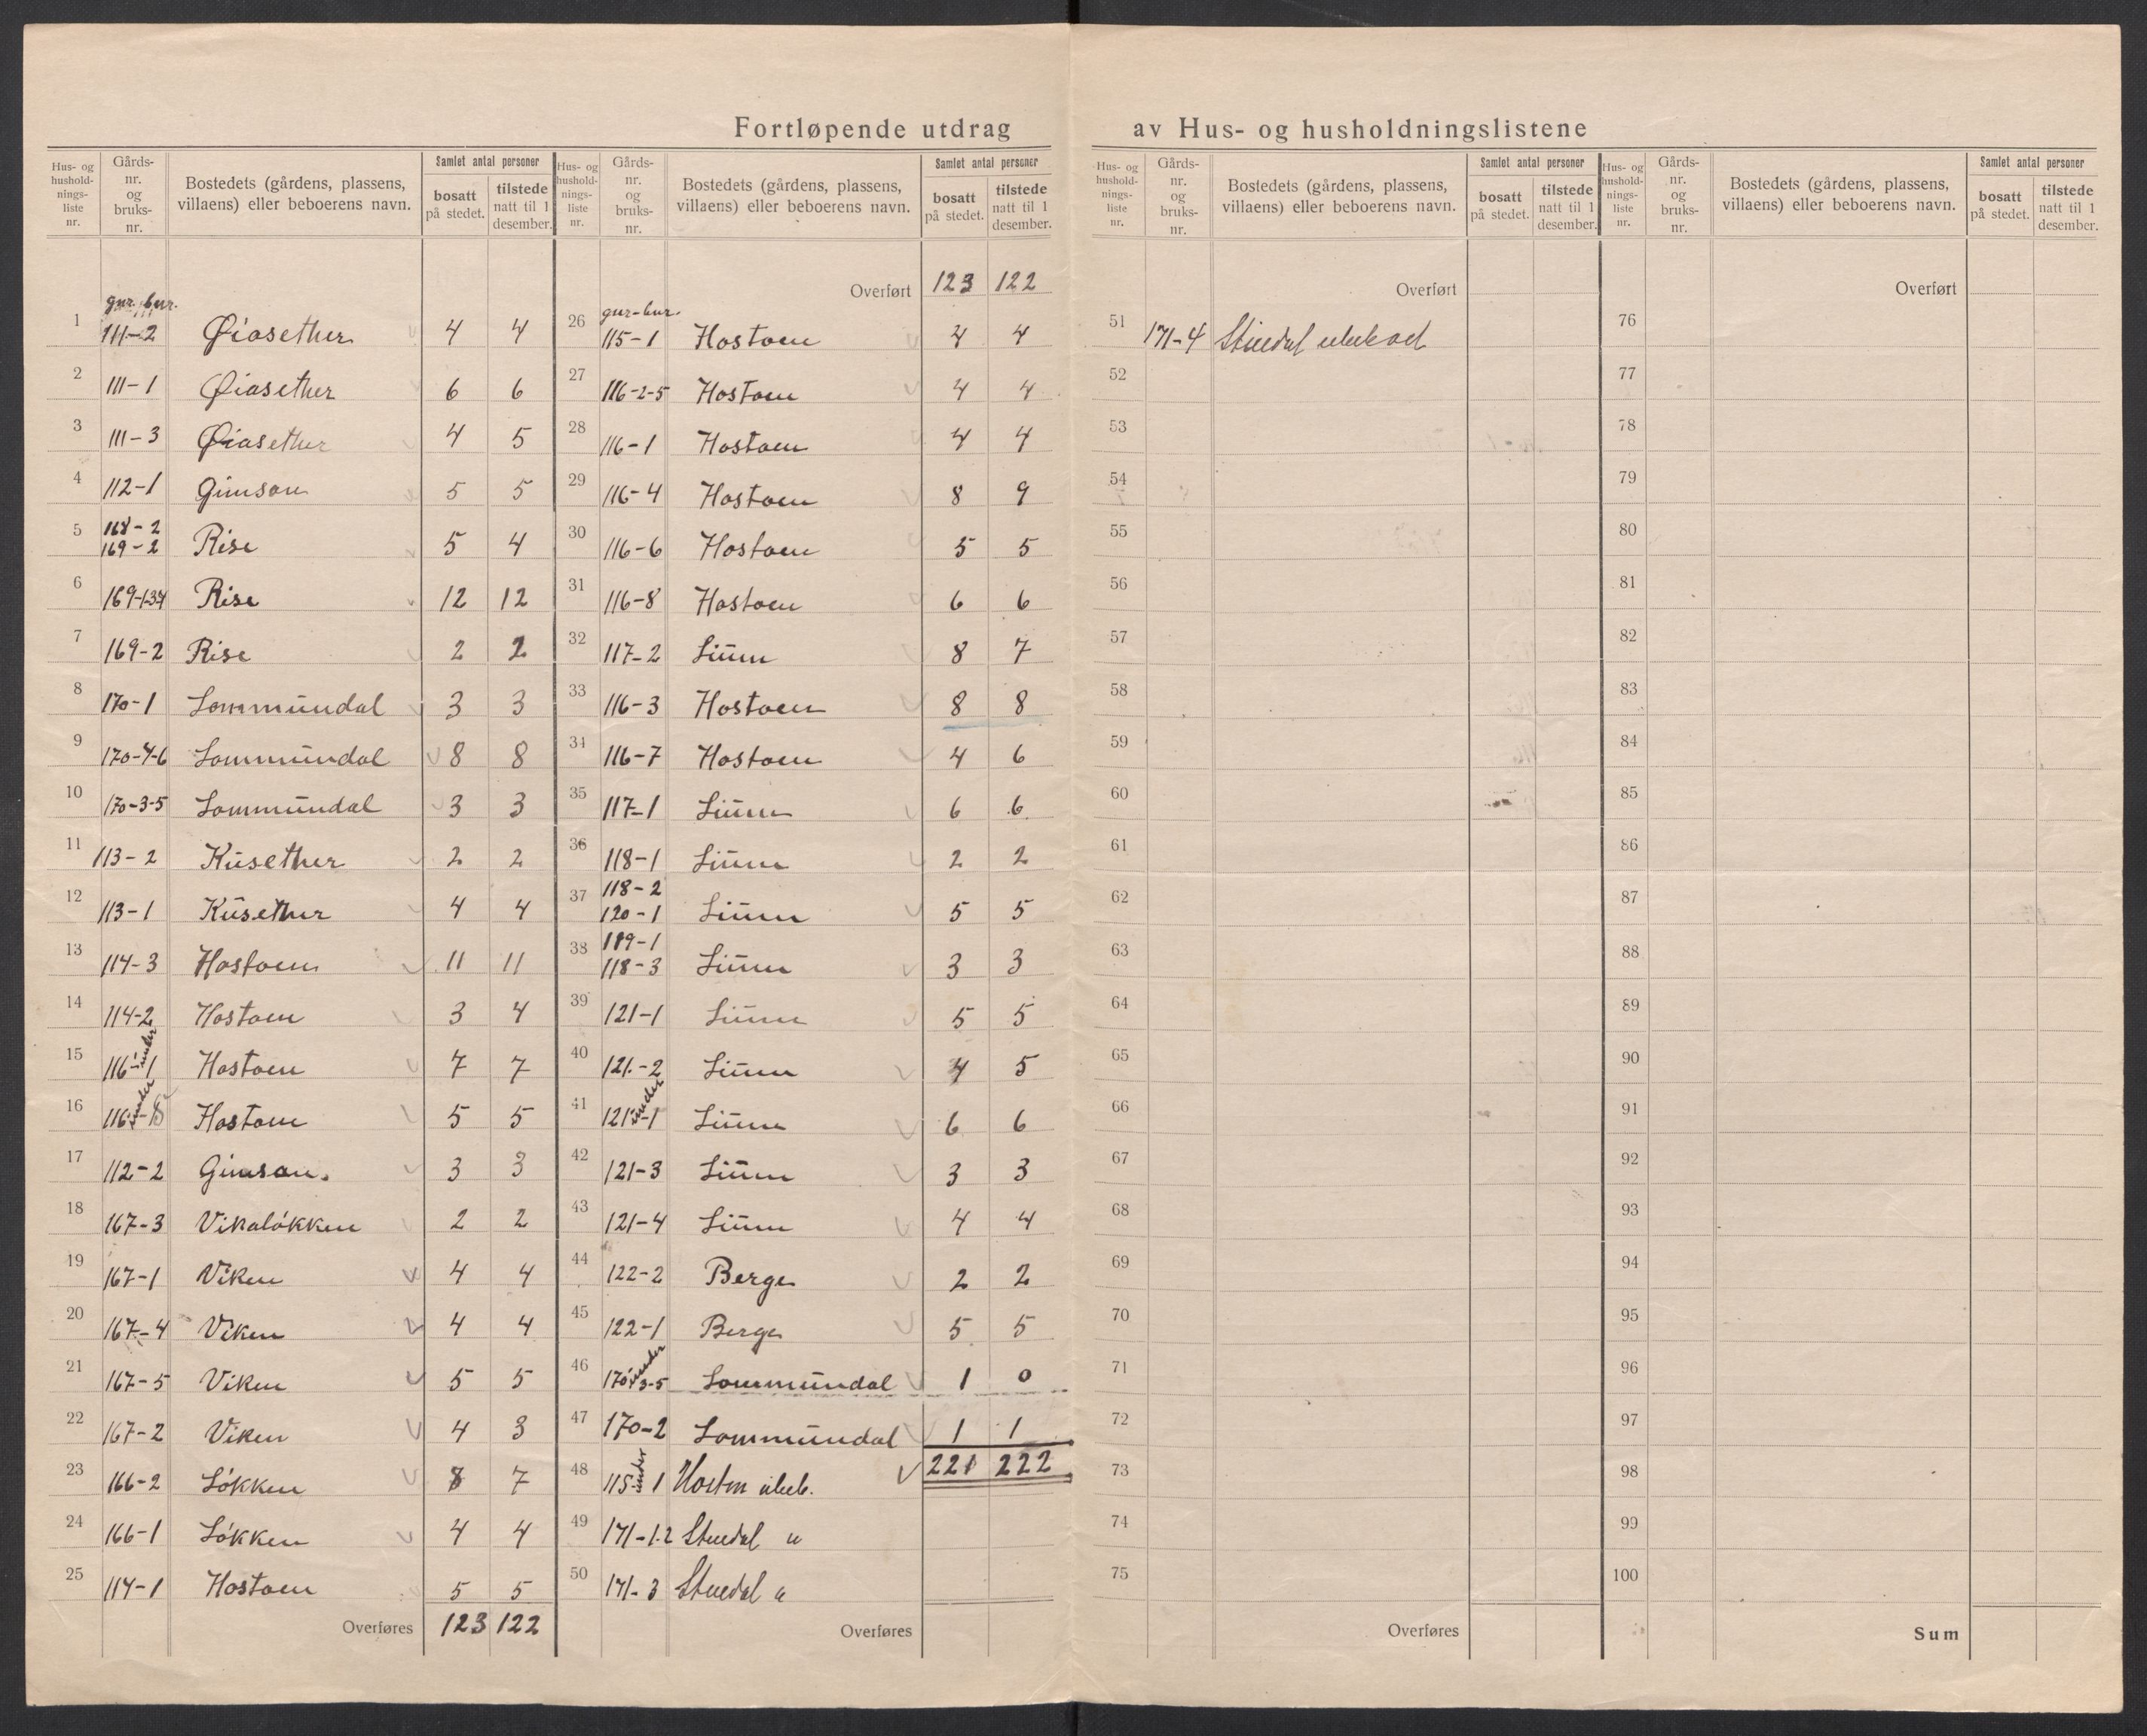 Fortløpende utdrag av Hus- og husholdningslistene
Hus- og hushold-nings-liste nr. | Gårds-nr. og bruks-nr. | Bostedets (gårdens, plassens, villaens) eller beboerens navn. | Samlet antal personer | bosatt på stedet. | tilstede natt til 1 desember.
gnr. bnr.
1 111-2 Øiasether 4 4
2 111-1 Øiasether 6 6
3 111-3 Øiasether 4 5
4 112-1 Gimson 5 5
5 168-2 169-2 Rise 5 4
6 169-1-3-4 Rise 12 12
7 169-2 Rise 2 2
8 170-1 Lommundal 3 3
9 170-4-6 Lommundal 8 8
10 170-3-5 Lommundal 3 3
11 113-2 Kusether 2 2
12 113-1 Kusether 4 4
13 114-3 Hostoen 11 11
14 114-2 Hostoen 3 4
15 116-1 under Hostoen 7 7
16 116-8 under Hostoen 5 5
17 112-2 Gimson. 3 3
18 167-3 Vikaløkken 2 2
19 167-1 Viken 4 4
20 167-4 Viken 4 4
21 167-5 Viken 5 5
22 167-2 Viken 4 3
23 166-2 Løkken 8 7
24 166-1 Løkken 4 4
25 114-1 Hostoen 5 5
Overføres 123 122
Hus- og hushold-nings-liste nr. | Gårds-nr. og bruks-nr. | Bostedets (gårdens, plassens, villaens) eller beboerens navn. | Samlet antal personer | bosatt på stedet. | tilstede natt til 1 desember.
Overført 123 122
gnr-bnr.
26 115-1 Hostoen 4 4
27 116-2-5 Hostoen 4 4
28 116-1 Hostoen 4 4
29 116-4 Hostoen 8 9
30 116-6 Hostoen 5 5
31 116-8 Hostoen 6 6
32 117-2 Lium 8 7
33 116-3 Hostoen 8 8
34 116-7 Hostoen 4 6
35 117-1 Lium 6 6.
36 118-1 Lium 2 2
37 118-2 120-1 Lium 5 5
38 119-1 118-3 Lium 3 3
39 121-1 Lium 5 5
40 121.-2 Lium 4 5
41 121-1 under Lium 6 6
42 121-3 Lium 3 3
43 121-4 Lium 4 4
44 122-2 Berge 2 2
45 122-1 Berge 5 5
46 170-3-5 under Lommundal 1 0
47 170-2 Lommundal 1 1
221 222
48 115-1 under Hosten ubeb.
49 171-1.2 Stuedal u
50 171-3 Stuedal u
Overføres
Hus- og hushold-nings-liste nr. | Gårds-nr. og bruks-nr. | Bostedets (gårdens, plassens, villaens) eller beboerens navn. | Samlet antal personer | bosatt på stedet. | tilstede natt til 1 desember.
Overført
51 171-4 Stuedal ubebod
52
53
54
55
56
57
58
59
60
61
62
63
64
65
66
67
68
69
70
71
72
73
74
75
Overføres
Hus- og hushold-nings-liste nr. | Gårds-nr. og bruks-nr. | Bostedets (gårdens, plassens, villaens) eller beboerens navn. | Samlet antal personer | bosatt på stedet. | tilstede natt til 1 desember.
Overført
76
77
78
79
80
81
82
83
84
85
86
87
88
89
90
91
92
93
94
95
96
97
98
99
100
Sum